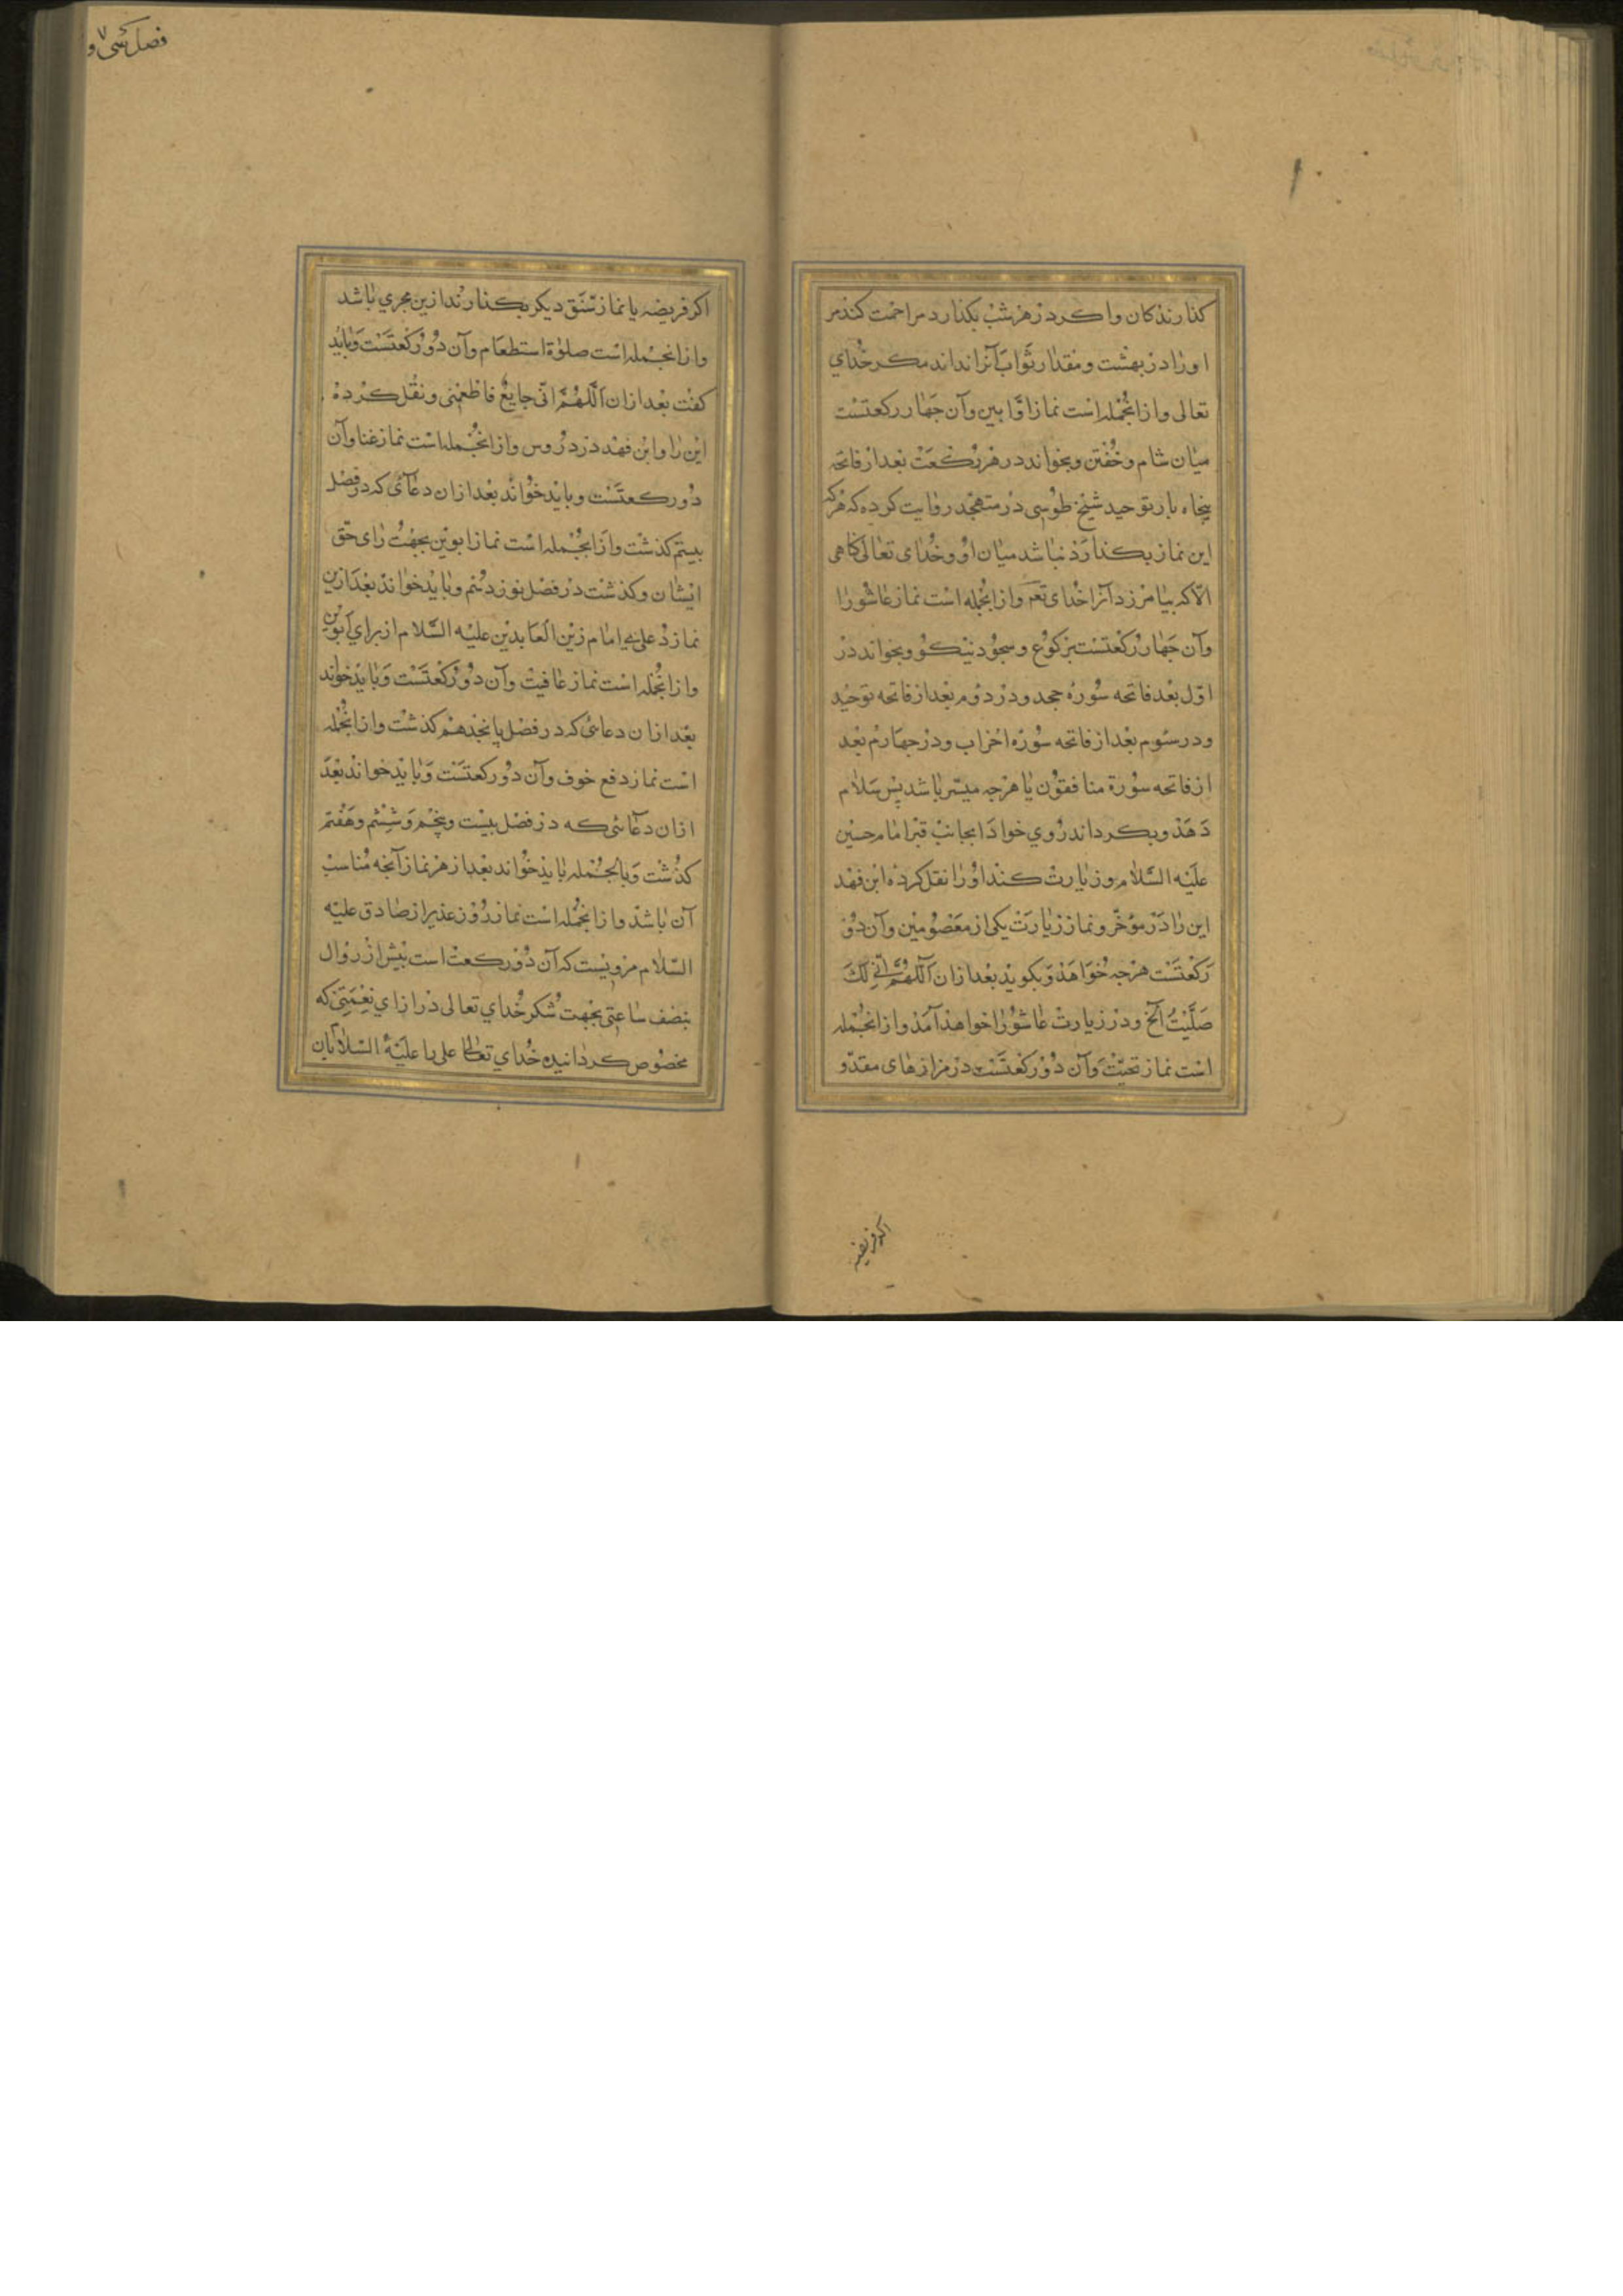 کذارندکان واکر در هر شب بکذارد مزاحمت کند مر
اورا در بهشت ومقدار ثواب آنرا نداند مکر خدای
تعالی وازانجمله است نماز اوابین وآن جهار رکعتست
میان شام وخفتن وبخواند در هر رکعت بعد از فاتحه
پنجاه بار توحید شیخ طوسی در متهجد روایت کرده که هرکه
این نماز بکذارد نباشد میان او وخدای تعالی کناهی
الا که بیامرزد آنرا خدای تعم وازانجمله است نماز عاشورا
وآن جهار رکعتست برکوع وسجود نیکو وبخواند در
اول بعد فاتحه سوره جحد ودر دوم بعد از فاتحه توحید
ودر سوم بعد از فاتحه سوره احزاب ودر جهارم بعد
از فاتحه سورة منافقون یا هرجه میسر باشد پس سلام
دهد وبکرداند روی خود را بجانب قبر امام حسین
علیه السلام وزیارت کند اورا نقل کرده ابن فهد
این را در موخر ونماز زیارت یکی از معصومین وآن دو
رکعتست هرجه خواهد وبکوید بعد ازان اللهم انی لک
صلیت الخ ودر زیارت عاشورا خواهد آمد وازانجمله
است نماز تحیت وآن دو رکعتست در مزارهای مقد و
اکر فریضه
فصل سی و
اکر فریضه یا نماز سنتی دیکر بکذارند ازین مجری باشد
وازانجمله است صلوة استطعام وآن دو رکعتست وباید
کفت بعد ازان اللهم انی جایع فاطعمنی ونقل کرده
این را وابن فهد در دروس وازانجمله است نماز غنا وآن
دو رکعتست وباید خواند بعد ازان دعائی که در فصل
بیستم کذشت وازانجمله است نماز ابوین بجهت رای حق
ایشان وکذشت در فصل نوزدهم وباید خواند بعد ازین
نماز دعای امام زین العابدین علیه السلام از برای ابوین
وازانجمله است نماز عافیت وآن دو رکعتست وباید خواند
بعد ازان دعائی که در فصل پانجدهم کذشت وازانجمله
است نماز دفع خوف وآن دو رکعتست وباید خواند بعد
ازان دعائی که در فصل بیست وپنجم وششم وهفتم
کذشت وبالجمله باید خواند بعد از هر نماز آنجه مناسب
آن باشد وازانجمله است نماز روز غدیر از صادق علیه
السلام مرویست که آن دو رکعت است بیش از زوال
بنصف ساعتی بجهت شکر خدای تعالی در ازای نعمتی که
مخصوص کردانیده خدای تعالی علی را علیه السلام بان